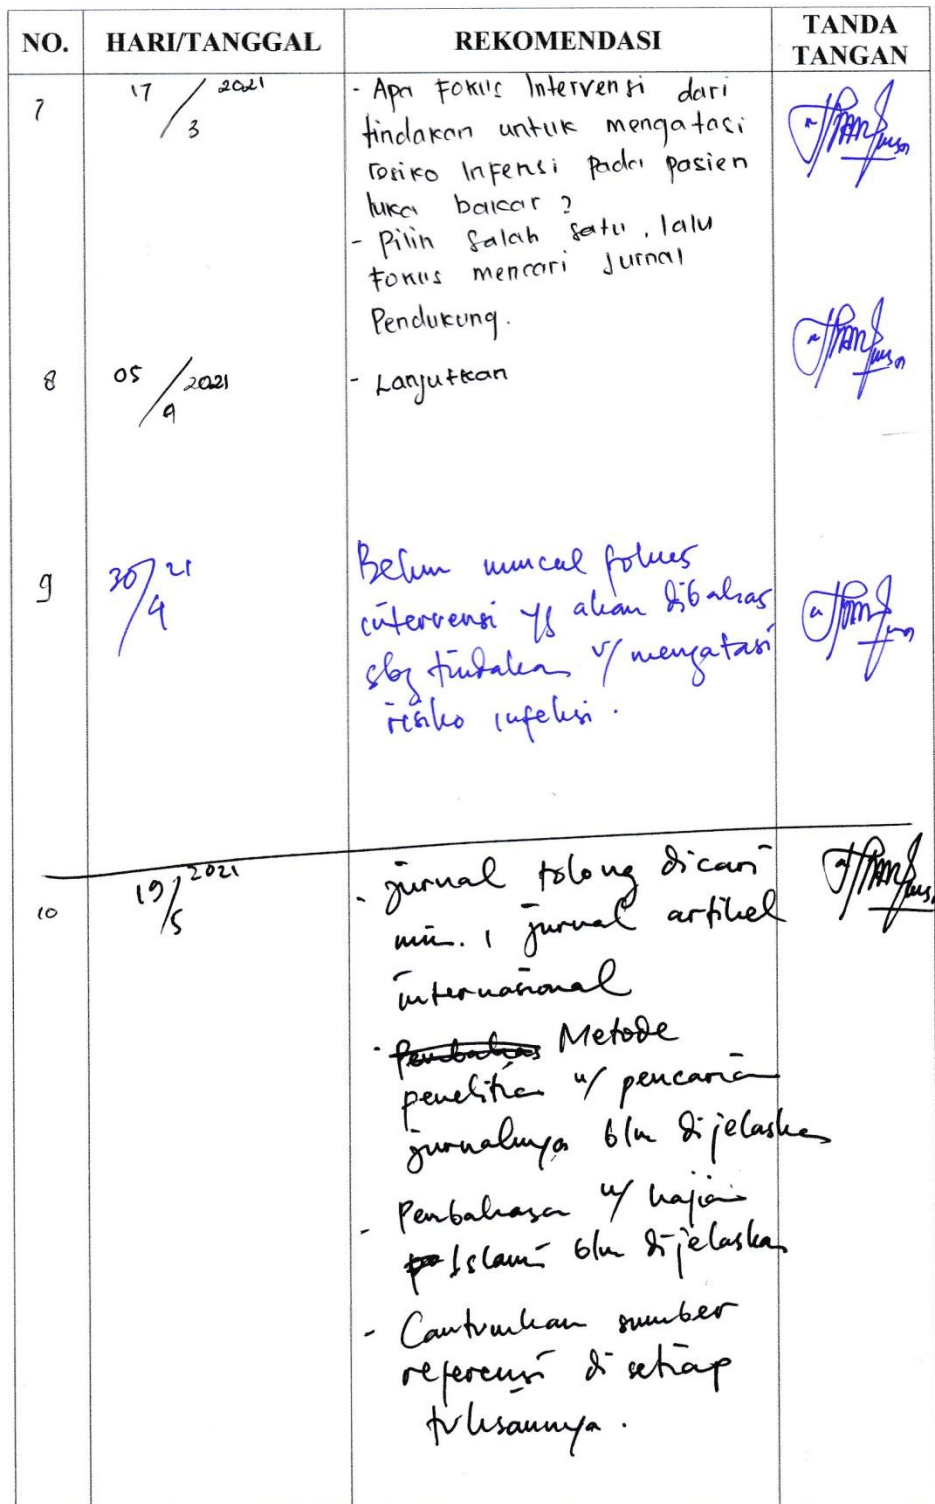 NO. HARI/TANGGAL REKOMENDASI TANDA TANGAN
7 17/3 2021 - Apa Fokus Intervensi dari
tindakan untuk mengatasi
resiko Infeksi pada pasien
luka bakar ?
- Pilih salah satu, lalu
Fokus mencari Jurnal
Pendukung.
8 05/4 2021 - Lanjutkan
9 30/4 21 Belum muncul fokus
intervensi yg akan dibahas
sbg tindakan u/ mengatasi
risiko infeksi.
10 19/5 2021 - jurnal tolong dicari
min. 1 jurnal artikel
internasional
- Metode
penelitian u/ pencarian
jurnalnya blm dijelaskan
- Pembahasan u/ kajian
Islami blm dijelaskan
- Cantumkan sumber
referensi di setiap
tulisannya.